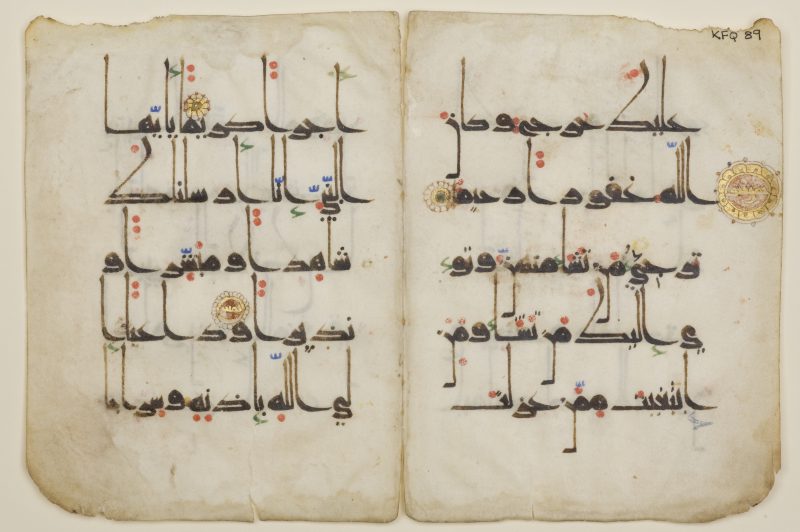 KFQ 89
عليك حرج وكان
الله غفورا رحيما
ترجي من تشا منهن وتو
ي اليك من تشا ومن
ابتغيت ممن عزلت
اجرا كريما يايها
النبي انا ارسلنك
شاهدا ومبشرا و
نذيرا وداعيا ا
لي الله باذنه وسرا